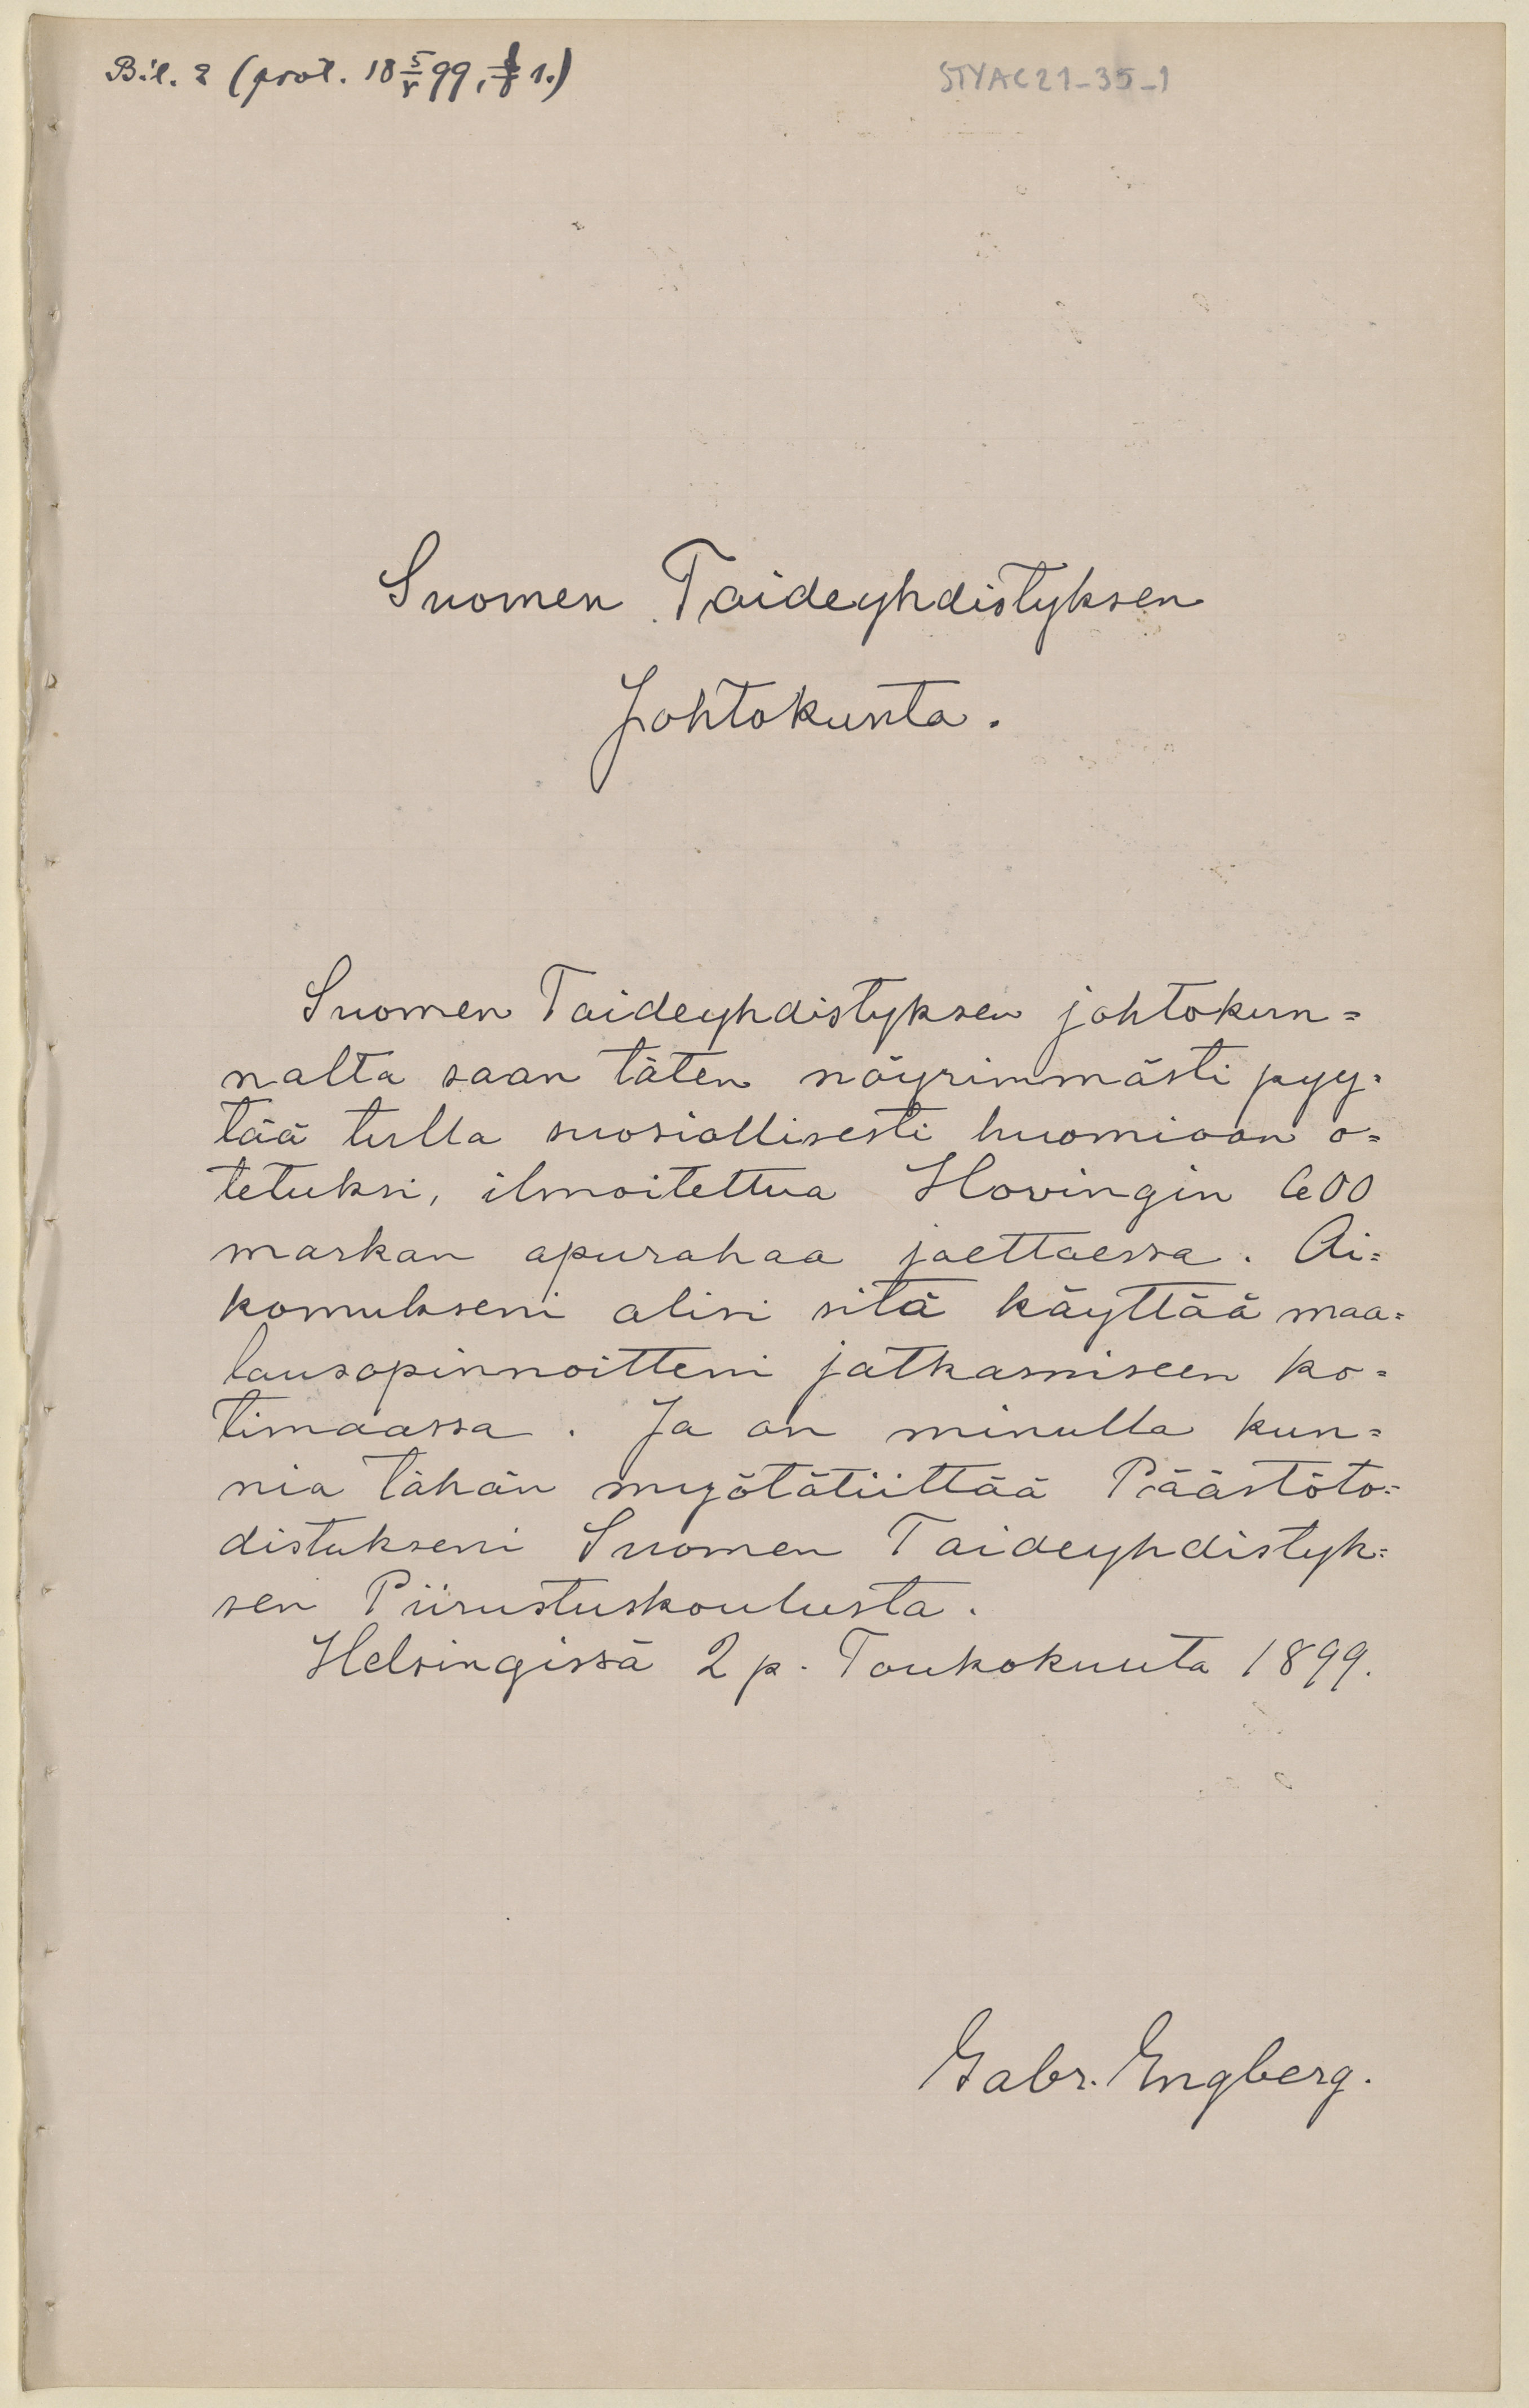 Bil. 2 (prot. 18 5/V 99, § 1.)
STYAC21-35-1
Suomen Taideyhdistyksen
Johtokunta.
Suomen Taideyhdistyksen johtokun=
nalta saan täten nöyrimmästi pyy=
tää tulla suosiallisesti huomioon o=
tetuksi, ilmoitettua Hovingin 600
markan apurahaa jaettaessa. Ai=
komukseni olisi sitä käyttää maa=
lausopinnoitteni jatkamiseen ko=
timaassa. Ja on minulla kun=
nia tähän myötätiittää Päästöto=
distukseni Suomen Taideyhdistyk=
sen Piirustuskoulusta.
Helsingissä 2 p. Toukokuuta 1899.
Gabr. Engberg.